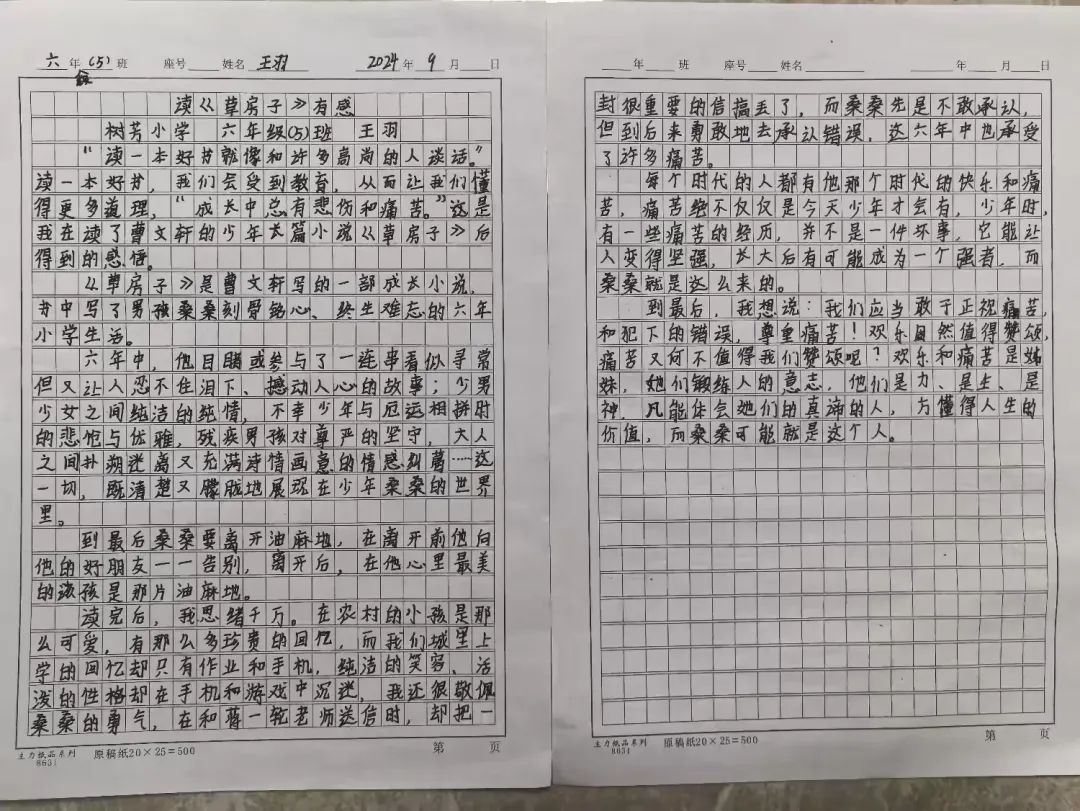 六年级(5)班 座号 姓名 王羽 2024年9月 日
读《草房子》有感
树芳小学 六年级(5)班 王羽
“读一本好书就像和许多高尚的人谈话。”
读一本好书，我们会受到教育，从而让我们懂
得更多道理，“成长中总有悲伤和痛苦。”这是
我在读了曹文轩的少年长篇小说《草房子》后
得到的感悟。
《草房子》是曹文轩写的一部成长小说，
书中写了男孩桑桑刻骨铭心、终生难忘的六年
小学生活。
六年中，他目睹或参与了一连串看似寻常
但又让人忍不住泪下、撼动人心的故事；少男
少女之间纯洁的纯情，不幸少年与厄运相拼时
的悲怆与优雅，残疾男孩对尊严的坚守，大人
之间扑朔迷离又充满诗情画意的情感纠葛……这
一切，既清楚又朦胧地展现在少年桑桑的世界
里。
到最后桑桑要离开油麻地，在离开前他向
他的好朋友一一告别，离开后，在他心里最美
的该孩是那片油麻地。
读完后，我思绪千万。在农村的小孩是那
么可爱，有那么多珍贵的回忆，而我们城里上
学的回忆却只有作业和手机，纯洁的笑容、活
泼的性格却在手机和游戏中沉迷，我还很敬佩
桑桑的勇气，在和蒋一轮老师送信时，却把一
主力纸品系列
8631
原稿纸20×25=500
第 页
年 班 座号 姓名 年 月 日
封很重要的信搞丢了，而桑桑先是不敢承认，
但到后来勇敢地去承认错误，这六年中也承受
了许多痛苦。
每个时代的人都有他那个时代的快乐和痛
苦，痛苦绝不仅仅是今天少年才会有，少年时，
有一些痛苦的经历，并不是一件坏事，它能让
人变得坚强，长大后有可能成为一个强者，而
桑桑就是这么来的。
到最后，我想说：我们应当敢于正视痛苦，
和犯下的错误，尊重痛苦！欢乐固然值得赞颂，
痛苦又何不值得我们赞颂呢？欢乐和痛苦是姊
妹，她们锻练人的意志，他们是力、是生、是
神，凡能体会她们的真谛的人，方懂得人生的
价值，而桑桑可能就是这个人。
主力纸品系列
8631
原稿纸20×25=500
第 页